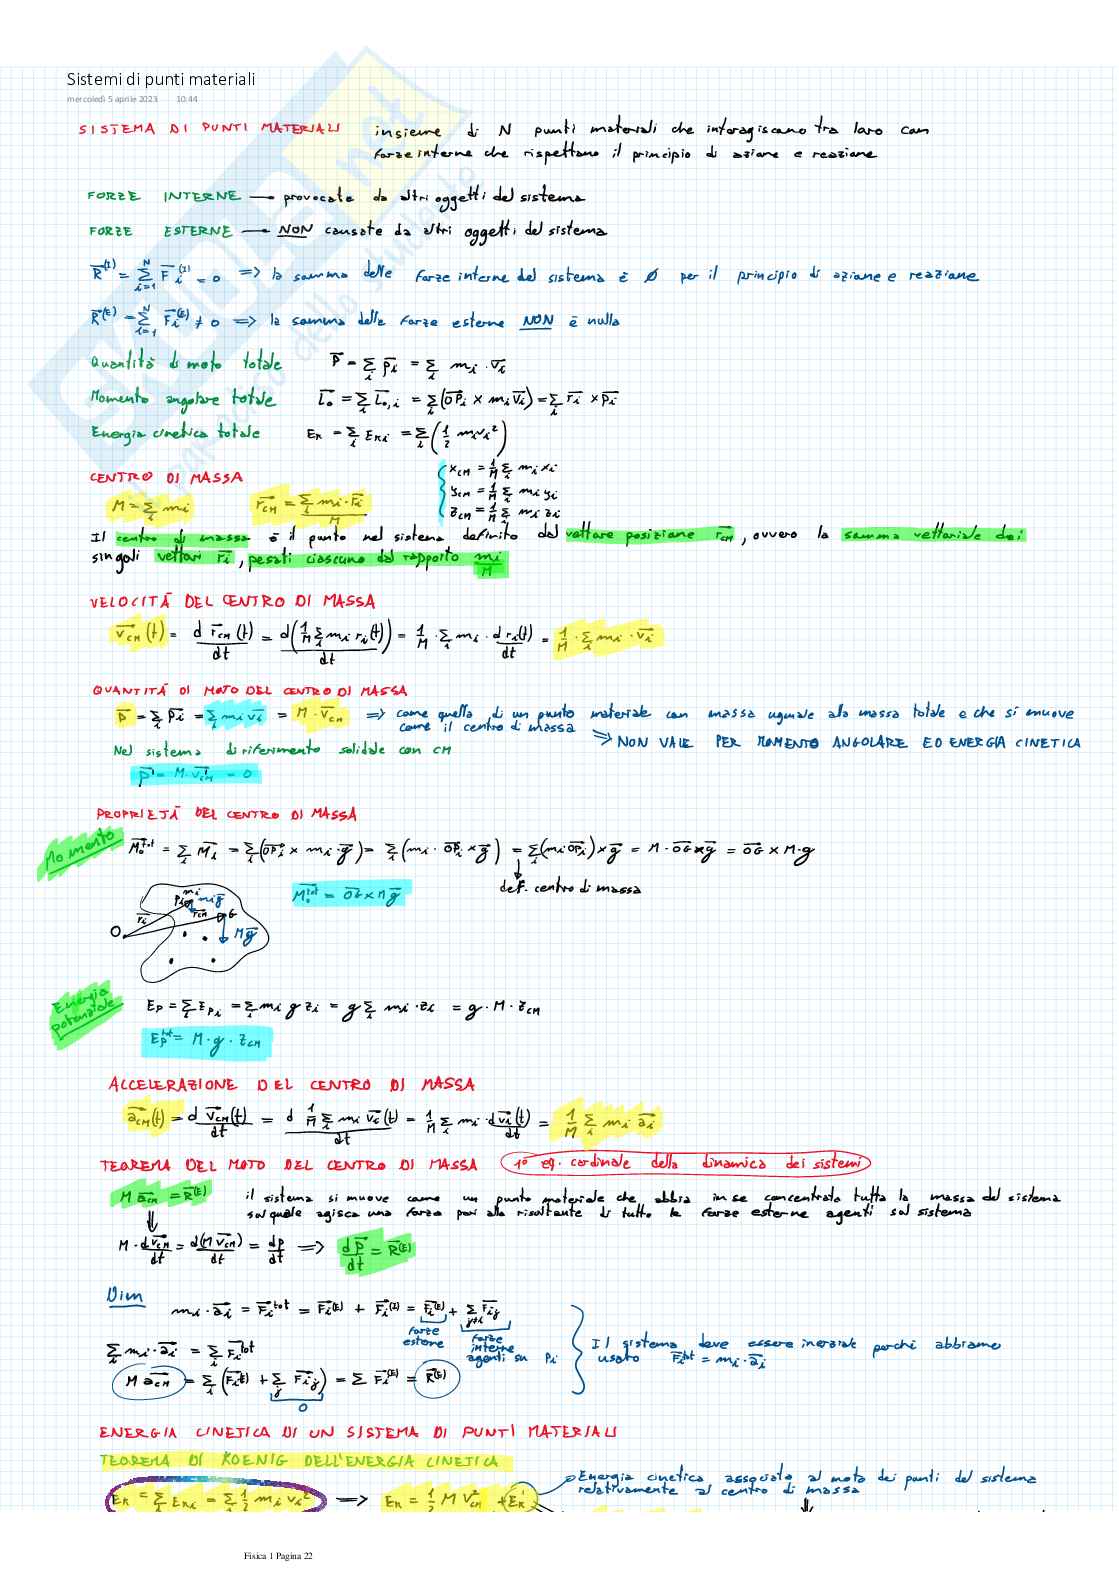 Sistemi di punti materiali
mercoledì 5 aprile 2023 10:44
SISTEMA DI PUNTI MATERIALI insieme di N punti materiali che interagiscano tra loro con
forze interne che rispettano il principio di azione e reazione
FORZE INTERNE → provocate da altri oggetti del sistema
FORZE ESTERNE → NON causate da altri oggetti del sistema
R⃗^(I) = Σ_{i=1}^N F⃗_i^(I) = 0 => la somma delle forze interne del sistema è Ø per il principio di azione e reazione
R⃗^(E) = Σ_{i=1}^N F⃗_i^(E) ≠ 0 => la somma delle forze esterne NON è nulla
Quantità di moto totale P⃗ = Σ_i p⃗_i = Σ_i m_i · v⃗_i
Momento angolare totale L⃗_o = Σ_i L⃗_{o,i} = Σ_i (OP⃗_i × m_i v⃗_i) = Σ_i r⃗_i × p⃗_i
Energia cinetica totale E_K = Σ_i E_{Ki} = Σ_i (1/2 m_i v_i²)
CENTRO DI MASSA
M = Σ_i m_i r⃗_CM = Σ_i m_i · r⃗_i / M
x_CM = 1/M Σ_i m_i x_i
y_CM = 1/M Σ_i m_i y_i
z_CM = 1/M Σ_i m_i z_i
Il centro di massa è il punto nel sistema definito dal vettore posizione r⃗_CM, ovvero la somma vettoriale dei
singoli vettori r⃗_i, pesati ciascuno dal rapporto m_i/M
VELOCITÀ DEL CENTRO DI MASSA
v⃗_CM(t) = d r⃗_CM(t)/dt = d(1/M Σ_i m_i r_i(t))/dt = 1/M · Σ_i m_i · d r_i(t)/dt = 1/M · Σ_i m_i · v⃗_i
QUANTITÀ DI MOTO DEL CENTRO DI MASSA
P⃗ = Σ_i p⃗_i = Σ_i m_i v⃗_i = M · v⃗_CM => come quella di un punto materiale con massa uguale alla massa totale e che si muove
come il centro di massa => NON VALE PER MOMENTO ANGOLARE ED ENERGIA CINETICA
Nel sistema di riferimento solidale con CM
P⃗' = M · v⃗'_CM = 0
PROPRIETÀ DEL CENTRO DI MASSA
Momento M⃗_o^tot = Σ_i M⃗_i = Σ_i (OP⃗_i × m_i · g⃗) = Σ_i (m_i · OP⃗_i × g⃗) = Σ_i (m_i OP⃗_i) × g⃗ = M · OG⃗ × g⃗ = OG⃗ × M · g
def. centro di massa
M⃗_o^tot = OG⃗ × M g⃗
m_i
P_i m_i g⃗
r⃗_i r⃗_CM G
O M g⃗
Energia
potenziale
E_P = Σ_i E_{Pi} = Σ_i m_i g z_i = g Σ_i m_i · z_i = g · M · z_CM
E_P^tot = M · g · z_CM
ACCELERAZIONE DEL CENTRO DI MASSA
a⃗_CM(t) = d v⃗_CM(t)/dt = d 1/M Σ_i m_i v⃗_i(t)/dt = 1/M Σ_i m_i · d v⃗_i(t)/dt = 1/M Σ_i m_i a⃗_i
TEOREMA DEL MOTO DEL CENTRO DI MASSA 1° eq. cardinale della dinamica dei sistemi
M a⃗_CM = R⃗^(E) il sistema si muove come un punto materiale che abbia in se concentrata tutta la massa del sistema
sul quale agisca una forza pari alla risultante di tutte le forze esterne agenti sul sistema
M · d v⃗_CM/dt = d(M v⃗_CM)/dt = dp/dt => dP⃗/dt = R⃗^(E)
Dim
m_i · a⃗_i = F⃗_i^tot = F⃗_i^(E) + F⃗_i^(I) = F⃗_i^(E) + Σ_{j≠i} F⃗_ij
forze esterne
forze interne agenti su P_i
Il sistema deve essere inerziale perché abbiamo
usato F⃗_i^tot = m_i · a⃗_i
Σ_i m_i · a⃗_i = Σ_i F⃗_i^tot
M a⃗_CM = Σ_i (F⃗_i^(E) + Σ_j F⃗_ij) = Σ F⃗_i^(E) = R⃗^(E)
0
ENERGIA CINETICA DI UN SISTEMA DI PUNTI MATERIALI
TEOREMA DI KOENIG DELL'ENERGIA CINETICA
Energia cinetica associata al moto dei punti del sistema
relativamente al centro di massa
E_K = Σ_i E_{Ki} = Σ_i 1/2 m_i v_i² => E_K = 1/2 M v²_CM + E'_K
Fisica 1 Pagina 22